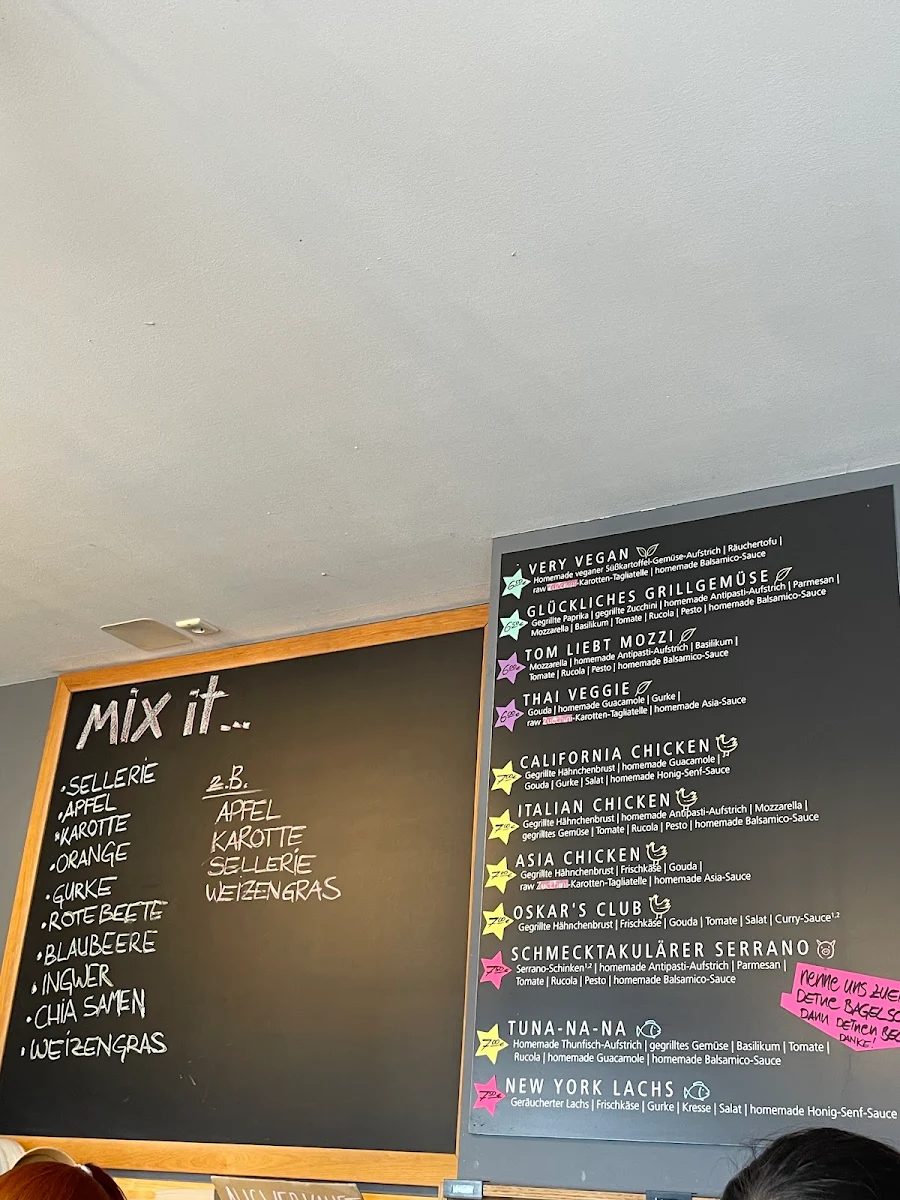 mix it...
• SELLERIE
• APFEL
• KAROTTE
• ORANGE
• GURKE
• ROTE BEETE
• BLAUBEERE
• INGWER
• CHIA SAMEN
• WEIZENGRAS
z.B.
APFEL
KAROTTE
SELLERIE
WEIZENGRAS
VERY VEGAN
Homemade veganer Süßkartoffel-Gemüse-Aufstrich | Räuchertofu |
raw -Karotten-Tagliatelle | homemade Balsamico-Sauce
GLÜCKLICHES GRILLGEMÜSE
Gegrillte Paprika | gegrillte Zucchini | homemade Antipasti-Aufstrich | Parmesan |
Mozzarella | Basilikum | Tomate | Rucola | Pesto | homemade Balsamico-Sauce
TOM LIEBT MOZZI
Mozzarella | homemade Antipasti-Aufstrich | Basilikum |
Tomate | Rucola | Pesto | homemade Balsamico-Sauce
THAI VEGGIE
Gouda | homemade Guacamole | Gurke |
raw Zucchini-Karotten-Tagliatelle | homemade Asia-Sauce
CALIFORNIA CHICKEN
Gegrillte Hähnchenbrust | homemade Guacamole |
Gouda | Gurke | Salat | homemade Honig-Senf-Sauce
ITALIAN CHICKEN
Gegrillte Hähnchenbrust | homemade Antipasti-Aufstrich | Mozzarella |
gegrilltes Gemüse | Tomate | Rucola | Pesto | homemade Balsamico-Sauce
ASIA CHICKEN
Gegrillte Hähnchenbrust | Frischkäse | Gouda |
raw Zucchini-Karotten-Tagliatelle | homemade Asia-Sauce
OSKAR'S CLUB
Gegrillte Hähnchenbrust | Frischkäse | Gouda | Tomate | Salat | Curry-Sauce¹·²
SCHMECKTAKULÄRER SERRANO
Serrano-Schinken¹·² | homemade Antipasti-Aufstrich | Parmesan |
Tomate | Rucola | Pesto | homemade Balsamico-Sauce
nenne uns
DEINE
DANN DEINEN
DANKE!
TUNA-NA-NA
Homemade Thunfisch-Aufstrich | gegrilltes Gemüse | Basilikum | Tomate |
Rucola | homemade Guacamole | homemade Balsamico-Sauce
NEW YORK LACHS
Geräucherter Lachs | Frischkäse | Gurke | Kresse | Salat | homemade Honig-Senf-Sauce